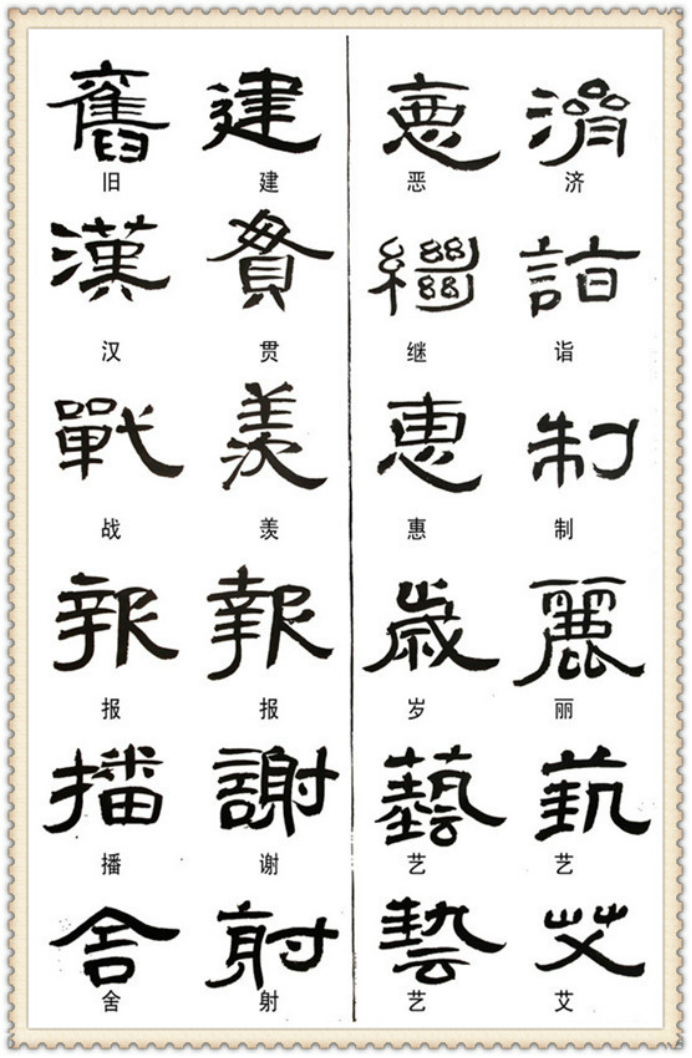 舊 建 惪 濟
旧 建 恶 济
漢 貫 繼 詣
汉 贯 继 诣
戰 羨 惠 制
战 羡 惠 制
報 報 歲 麗
报 报 岁 丽
播 謝 藝 藝
播 谢 艺 艺
舍 射 藝 艾
舍 射 艺 艾